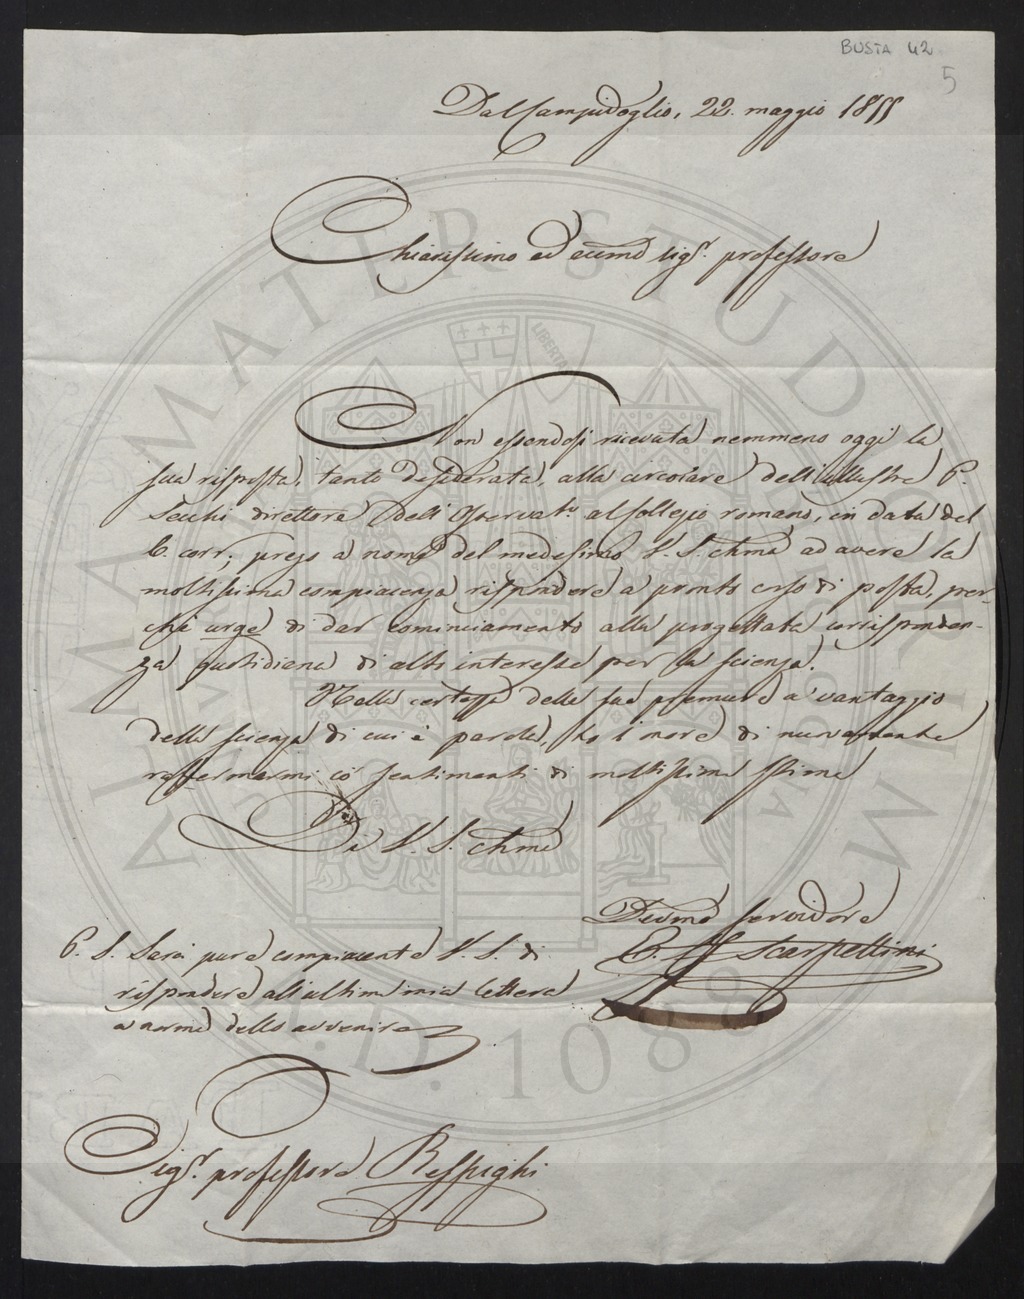 BUSTA 42
5
Dal Campidoglio, 22. maggio 1855
Chiarissimo ed ecc͞mo sig.r professore
Non essendosi ricevuta nemmeno oggi la
sua risposta, tanto desiderata, alla circolare dell'illustre P.
Secchi direttore dell'Osservat.o al Collegio romano, in data del
6. corr., prego a nome del medesimo V. S. Ch͞ma ad avere la
moltissima compiacenza rispondere a pronto corso di posta, per-
chè urge di dar cominciamento alla progettata corrisponden-
za quotidiana di alto interesse per la scienza.
Nella certezza delle sue premure a vantaggio
della scienza di cui è parola, ho l'onore di nuovamente
raffermarmi co' sentimenti di moltissima stima
Di V. S. Ch͞ma
Dev͞mo servidore
E. F. Scarpellini
P. S. Sarà pure compiacente V. S. di
rispondere all'ultima mia lettera
a norma dello avvenire
Sig.r professore Respighi
ALMA MATER STUDIORUM
A.D. 1088
LIBERTAS